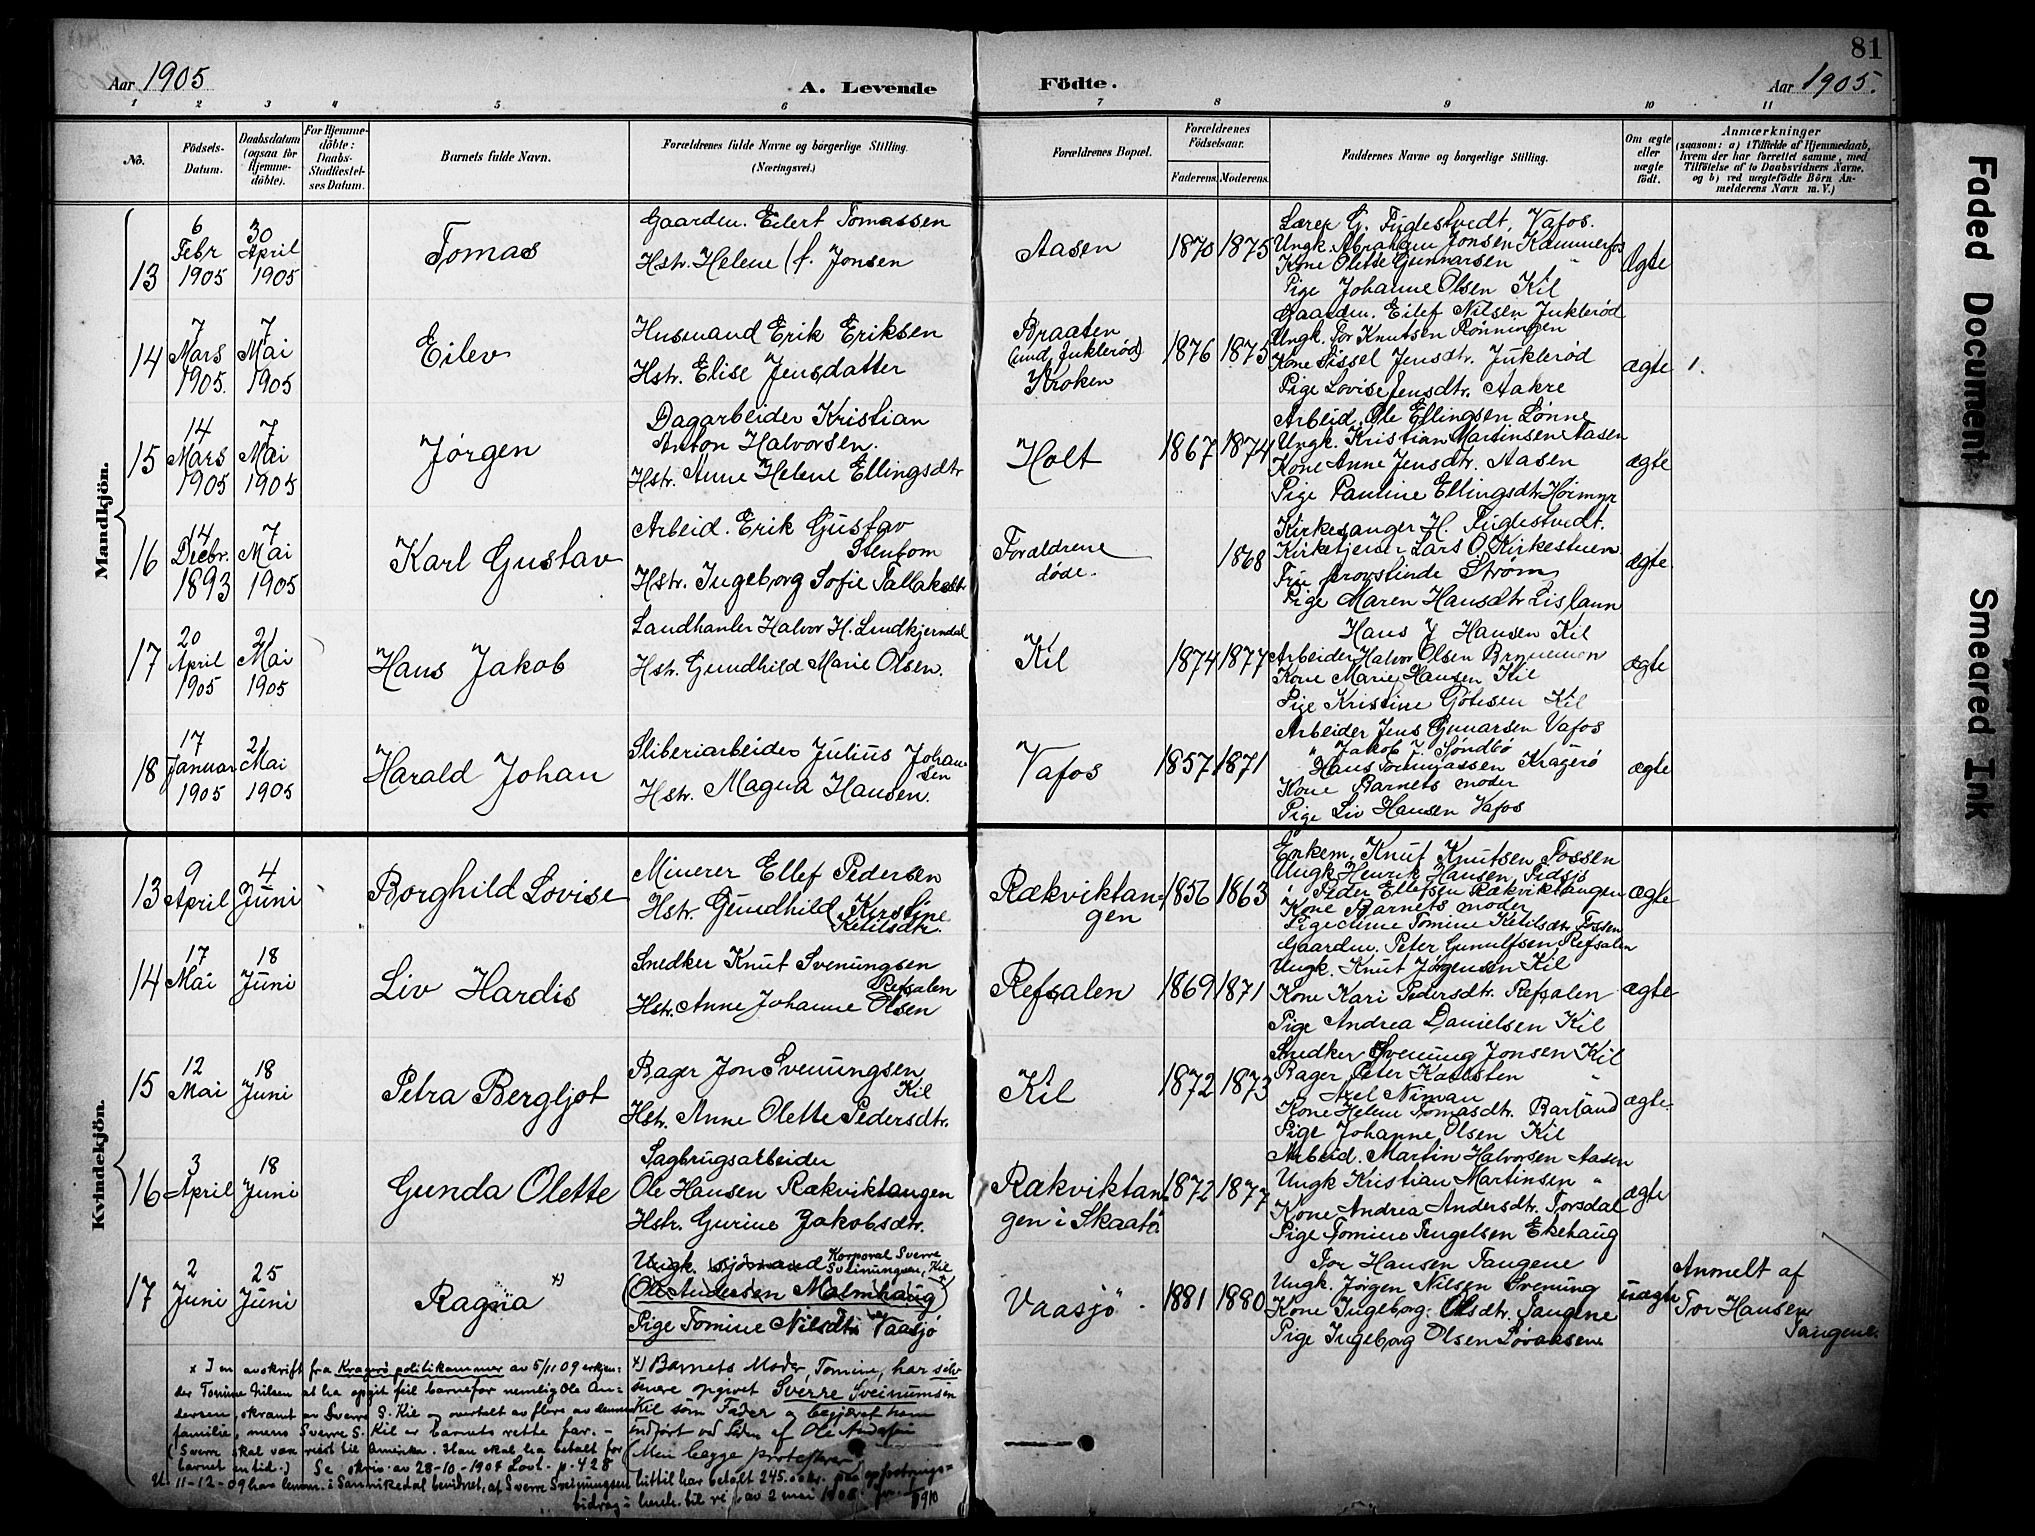 81
Aar 1905
A. Levende
Födte.
Aar 1905.
1 2 3 4 5 6 7 8 9 10 11
No.
Födsels-Datum.
Daabsdatum (ogsaa for Hjemme-döbte).
For Hjemme-döbte: Daabs-Stadfæstel-ses Datum.
Barnets fulde Navn.
Forældrenes fulde Navne og borgerlige Stilling. (Næringsvei.)
Forældrenes Bopæl.
Forældrenes Födselsaar.
Faderens. Moderens.
Faddernes Navne og borgerlige Stilling.
Om ægte eller uægte födt.
Anmærkninger
(saasom: a) i Tilfælde af Hjemmedaab, hvem der har forrettet samme, med Tilföielse af to Daabsvidners Navne, og b) ved uægtefödte Börn An-melderens Navn m. V.)
Mandkjön.
13
6 Febr 1905
30 April 1905
Tomas
Gaardm. Eilert Tomassen
Hstr. Helene f. Jonsen
Aasen
1870 1875
Lærer G. Fuglestvedt, Vafos.
Ungk. Abraham Jonsen Kammerfos
Kone Olette Gunnarsen "
Pige Johanne Olsen Kil
ægte
14
7 Mars 1905.
7 Mai 1905
Eilev
Husmand Erik Eriksen
Hstr. Elise Jensdatter
Braaten
(und. Juklerød)
Kroken
1876 1875
Gaardm. Eilef Nilsen Juklerød
Ungk. Tor Knutsen Rønningen
Kone Sissel Jensdtr. Juklerød
Pige Lovise Jensdtr. Aakre
ægte
1.
15
14 Mars 1905
7 Mai 1905
Jørgen
Dagarbeider Kristian
Anton Halvorsen.
Hstr. Anne Helene Ellingsdtr
Holt
1867 1874
Arbeid. Ole Ellingsen Lønne
Ungk. Kristian Martinsen Aasen
Kone Anne Jensdtr. Aasen
Pige Pauline Ellingsdtr Høimyr
ægte
16
14 Decbr. 1893
7 Mai 1905
Karl Gustav
Arbeid. Erik Gustav
Stenbom
Hstr. Ingeborg Sofie Tallaksdtr
Forældrene
døde.
1868
Kirkesanger H. Fuglestvedt.
Kirketjener Lars O. Kirkestuen
Fru provstinde Strøm
Pige Maren Hansdtr
ægte
17
20 April 1905
21 Mai 1905
Hans Jakob
Landhanler Halvor H. Lindkjerndal
Hstr. Gundhild Marie Olsen.
Kil
1874 1877
Hans J Hansen Kil
Arbeider Halvor Olsen
Kone Marie Hansen Kil
Pige Kristine Kil
ægte
18
17 Januar 1905
21 Mai 1905
Harald Johan
Sliberiarbeider Julius Johan-
sen
Hstr. Magna Hansen.
Vafos
1857 1871
Arbeider Jens Gunarsen Vafos
" Jakob J. Søndbø
Hans Tommassen Kragerø
Kone Barnets moder
Pige Liv Hansen Vafos
ægte
Kvindekjön.
13
9 April
4 Juni
Borghild Lovise
Minerer Ellef Pedersen
Hstr. Gundhild Kirstine
Ketilsdtr.
Rækviktan-
gen
1856 1863
Enkem. Knut Knutsen Fossen
Ungk Henrik Hansen
" Peder Ellefsen Rækviktangen
Kone Barnets moder
Pige Tomine Ketilsdtr Fossen
ægte
14
17 Mai
18 Juni
Liv Hardis
Snedker Knut Svenungsen
Refsalen
Hstr. Anne Johanne Olsen
Refsalen
1869 1871
Gaardm. Peter Gunulfsen Refsalen
Ungk. Knut Jørgensen Kil
Kone Kari Pedersdtr. Refsalen
Pige Andrea Danielsen Kil
ægte
15
12 Mai
18 Juni
Petra Bergljot
Bager Jon Svenungsen
Kil
Hstr. Anne Olette Pedersdtr.
Kil
1872 1873
Snedker Svenung Jonsen Kil
Bager Peter "
" Axel Niman
Kone Helene Tomasdtr. Barland
Pige Johanne Olsen Kil
ægte.
16
3 April
18 Juni
Gunda Olette
Sagbrugsarbeider
Ole Hansen Rækviktangen
Hstr. Gurine Jakobsdtr.
Rækviktan-
gen i Skaatø
1872 1877
Arbeid. Martin Halvorsen Aasen
Ungk Kristian Martinsen "
Kone Andrea Andersdtr. Torsdal
Pige Tomine Tengelsen Ekehaug
ægte
17
2 Juni
25 Juni
Ragna x)
Ungk. sjømand Korporal Sverre
Sveinungsen, Kil
(Ole Andersen Malmhaug)
Pige Tomine Nilsdtr Vaasjø
Vaasjø
1881 1880
Tor Hansen Tangene
Ungk. Jørgen Nilsen Svenung
Kone Ingeborg Olsdtr. Tangene
Pige Ingeborg Olsen
uægte
Anmelt af
Tor Hansen
Tangene.
x I en avskrift fra Kragerø politikammer av 5/11 09 erkjen-
der Tomine Nilsen at ha opgit feil barnefar nemlig Ole An-
dersen, skræmt av Sverre S. Kil og overtalt av flere av dennes
familie, mens Sverre S. Kil er barnets rette far. -
(Sverre skal være reist til Amerika. Han skal ha betalt for
barnet en tid.) Se skriv. av 28-10-1907 p. 428
x) Barnets Moder, Tomine, har selv
senere opgivet Sverre Sveinungsen
Kil som Fader og begjæret ham
indført ved Siden af Ole Andersen
(Men begge protesterer)
11-12-09 har lensm. i Sannikedal bevidnet, at Sverre Sveinungsen hittil har betalt 245.00 kr. paa opfostrings-
bidrag i henh. til av 2 mai 1906. 1910
Faded Document
Smeared Ink